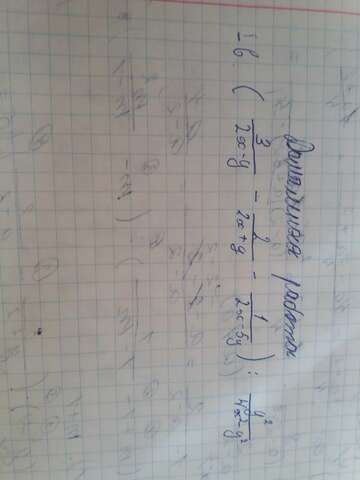 Домашняя работа
1 в. ( 3/(2x-y) - 2/(2x+y) - 1/(2x-5y) ) : y²/(4x²-y²)